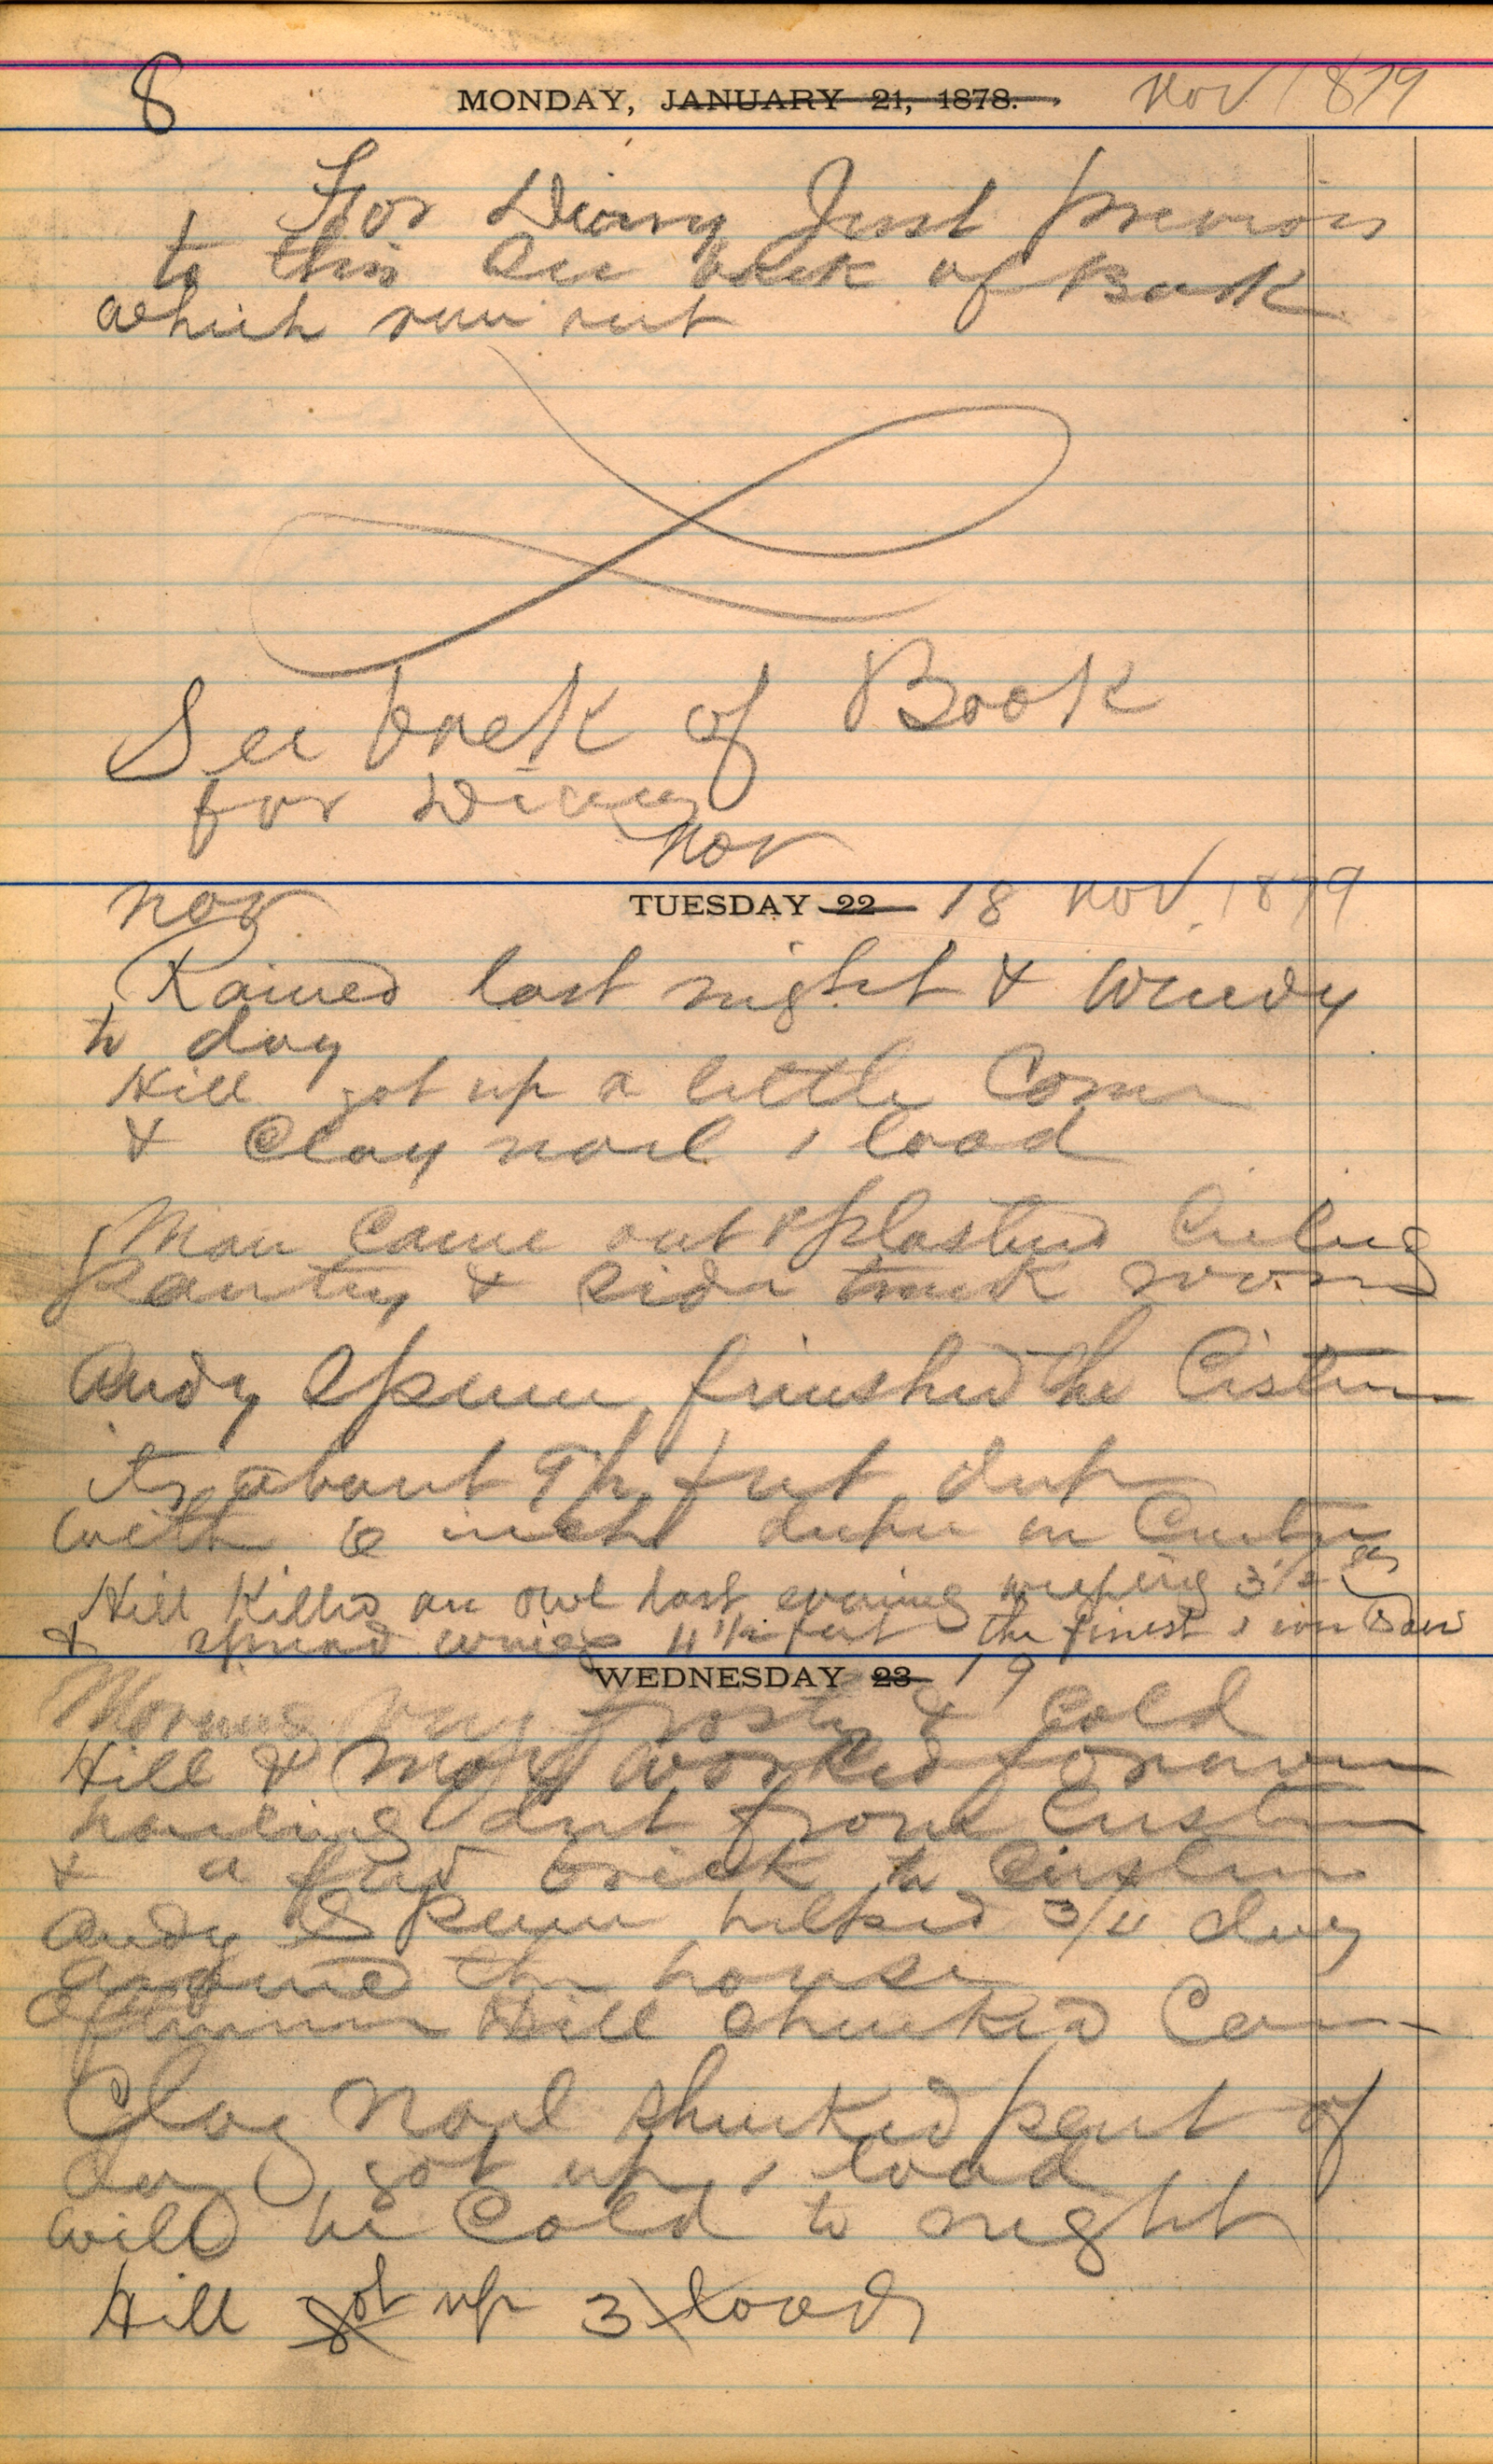 8 MONDAY, JANUARY 21, 1878. Nov 1879
For Diary Just previous
to this See back of Book
which run out
See back of Book
for Diary
Nov
Nov
TUESDAY 22 18 Nov. 1879
Rained last night & Windy
to day
Hill got up a little Corn
& Clay Noel 1 load
Man Came out & plasterd Ceiling
Pantry & Side trunk room
Andy Spenn finished the Cistern
its about feet deep
with 6 inch deeper in Center
Hill Killed an owl last evening 3 1/2
& spread wings 4 1/2 feet the finest I ever saw
WEDNESDAY 23 19
Morning very frosty & Cold
Hill & worked forenoon
hauling dirt from Cistern
& a few brick to Cistern
Andy Spenn helped 3/4 day
around the house
Afternoon Hill shucked Corn
Clay Noel shucked part of
day got up 1 load
will be Cold to night
Hill got up 3 loads